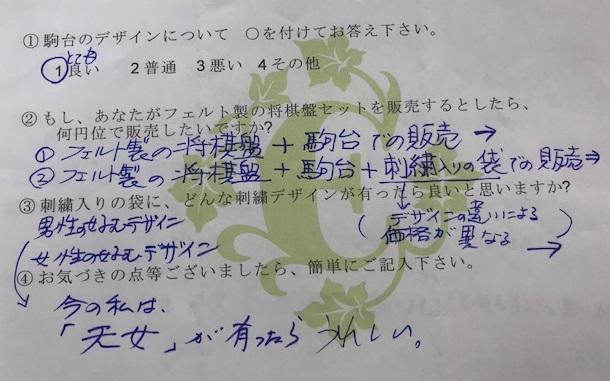 ①駒台のデザインについて ○を付けてお答え下さい。
とても
1良い 2普通 3悪い 4その他
②もし、あなたがフェルト製の将棋盤セットを販売するとしたら、
何円位で販売したいですか?
①フェルト製の将棋盤+駒台での販売→
②フェルト製の将棋盤+駒台+刺繍入りの袋での販売⇒
③刺繍入りの袋に、どんな刺繍デザインが有ったら良いと思いますか?
男性の好むデザイン
(デザインの違いによる
価格が異なる)→
女性の好むデザイン
④お気づきの点等ございましたら、簡単にご記入下さい。
今の私は、
「天女」が有ったらうれしい。